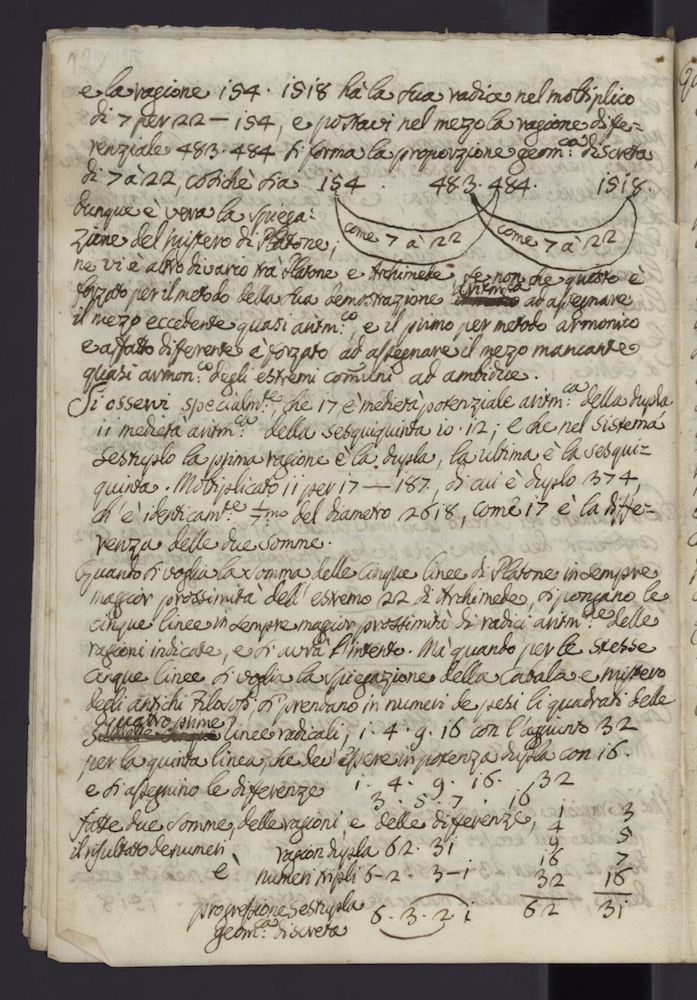 e la ragione 154. 1518 hà la sua radice nel moltiplico
di 7 per 22 — 154, e postavi nel mezo la ragione diffe-
renziale 483. 484 si forma la proporzione geom.ca discreta
di 7 à 22, cosichè sia 154 . 483. 484. 1518.
come 7 à 22 come 7 à 22
dunque è vera la spiega:
zione del mistero di Platone;
ne vi è altro divario trà Platone e Archimede se non che questo è
forzato per il metodo della sua demostrazione aritm.ca ad assegnare
il mezo eccedente quasi aritm.co, e il primo per metodo armonico
e affatto differente è forzato ad assegnare il mezo mancante
quasi armon.co degli estremi comuni ad ambidue.
Si osservi specialm.te, che 17 è medietà potenziale aritm.ca della dupla
11 medietà aritm.ca della sesquiquinta 10. 12; e che nel sistema
sestuplo la prima ragione è la dupla, la ultima è la sesqui-
quinta. Moltiplicato 11 per 17 — 187, di cui è duplo 374,
ch'è identicam.te 1/7mo del diametro 2618, come 17 è la diffe-
renza delle due somme.
Quando si voglia la somma delle cinque linee di Platone in sempre
maggior prossimità dell'estremo 22 di Archimede, si pongano le
cinque linee in sempre maggior prossimità di radici aritm.che delle
ragioni indicate, e si avrà l'intento. Mà quando per le stesse
cinque linee si voglia la spiegazione della Cabala e mistero
degli antichi Filosofi, si prendano in numeri de pesi li quadrati delle
quattro prime
linee radicali, 1. 4. 9. 16 con l'aggiunto 32
per la quinta linea, che dev'essere in potenza dupla con 16.
e si assegnino le differenze 1. 4. 9. 16. 32
3. 5. 7. 16
fatte due somme, delle ragioni, e delle differenze, 1 3
4 5
il risultato de numeri ragion dupla 62. 31 9 7
è numeri tripli 6-2. 3-1 16 16
32
progressione sestupla 6. 3. 2 1 62 31
geom.ca discreta